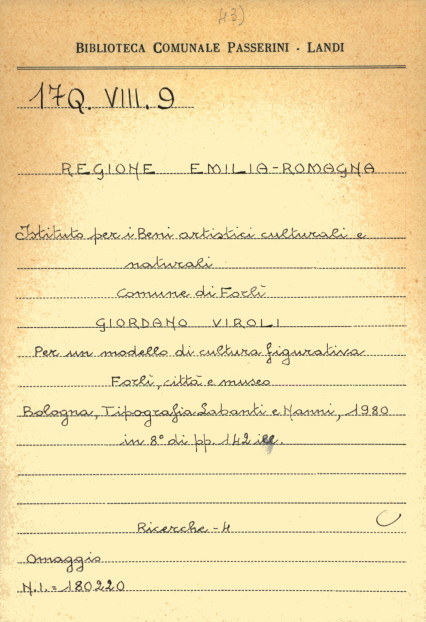 43)
BIBLIOTECA COMUNALE PASSERINI - LANDI
17Q. VIII. 9
REGIONE EMILIA-ROMAGNA
Istituto per i Beni artistici culturali e
naturali
Comune di Forlì
GIORDANO VIROLI
Per un modello di cultura figurativa
Forlì, città e museo
Bologna, Tipografia Labanti e Nanni, 1980
in 8° di pp. 142 ill.
Ricerche - 4
Omaggio
N.I. = 180220